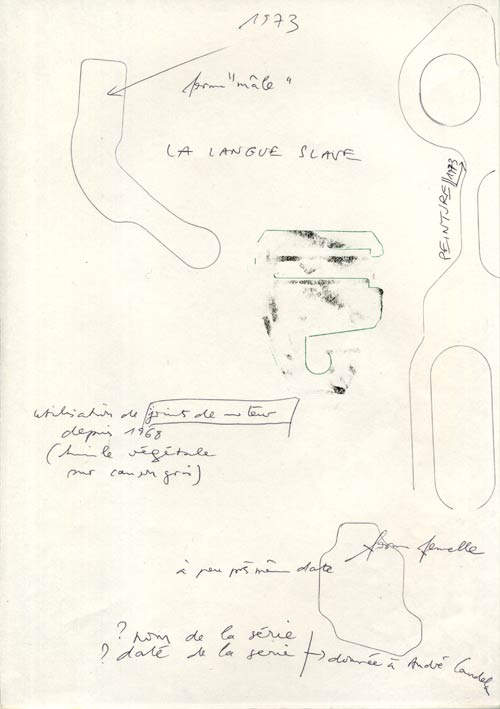 1973
forme "mâle"
LA LANGUE SLAVE
PEINTURE 1973
utilisation de joints de moteur
depuis 1968
(huile végétale
sur carton gris)
forme femelle
à peu près même date
? nom de la série
? date de la série
→ donnée à André Candela